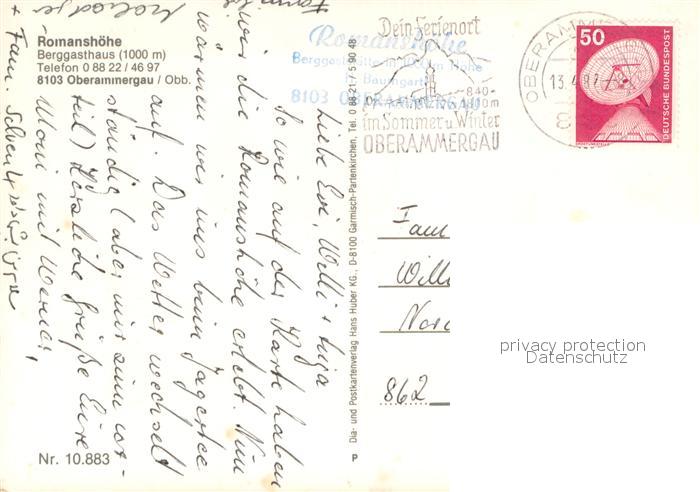 Romanshöhe
Berggasthaus (1000 m)
Telefon 0 88 22 / 46 97
8103 Oberammergau / Obb.
Nr. 10.883
Liebe Evi, Willi +
So wie auf der Karte haben
wir die Romanshöhe erlebt. Nun
wärmen wir uns beim Jagertee
auf. Das Wetter wechselt
ständig (aber wir sind
Herzliche Grüße Eure
Moni mit Werner,
+ Fam.
Dia- und Postkartenverlag Hans Huber KG., D-8100 Garmisch-Partenkirchen, Tel. 0 88 21 / 5 90 48
P
Romanshöhe
Berggaststätte in 1000 m Höhe
Baumgartl
8103 OBERAMMERGAU
Dein Ferienort
840-
im Sommer u. Winter
OBERAMMERGAU
OBERAMME
13.4.87
8
50
DEUTSCHE BUNDESPOST
Fam
Will
862
privacy protection
Datenschutz